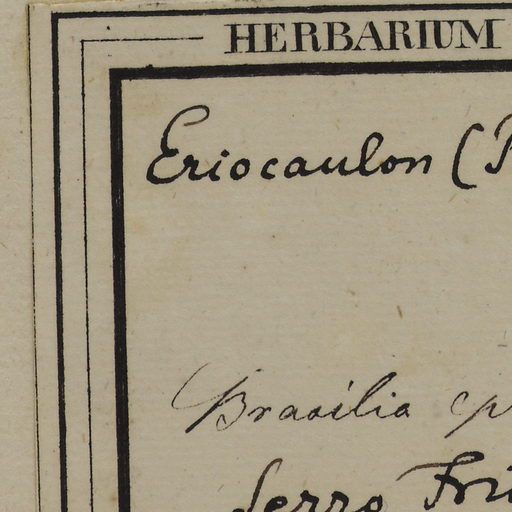 HERBARIUM
Eriocaulon (
Brasilia
Serro